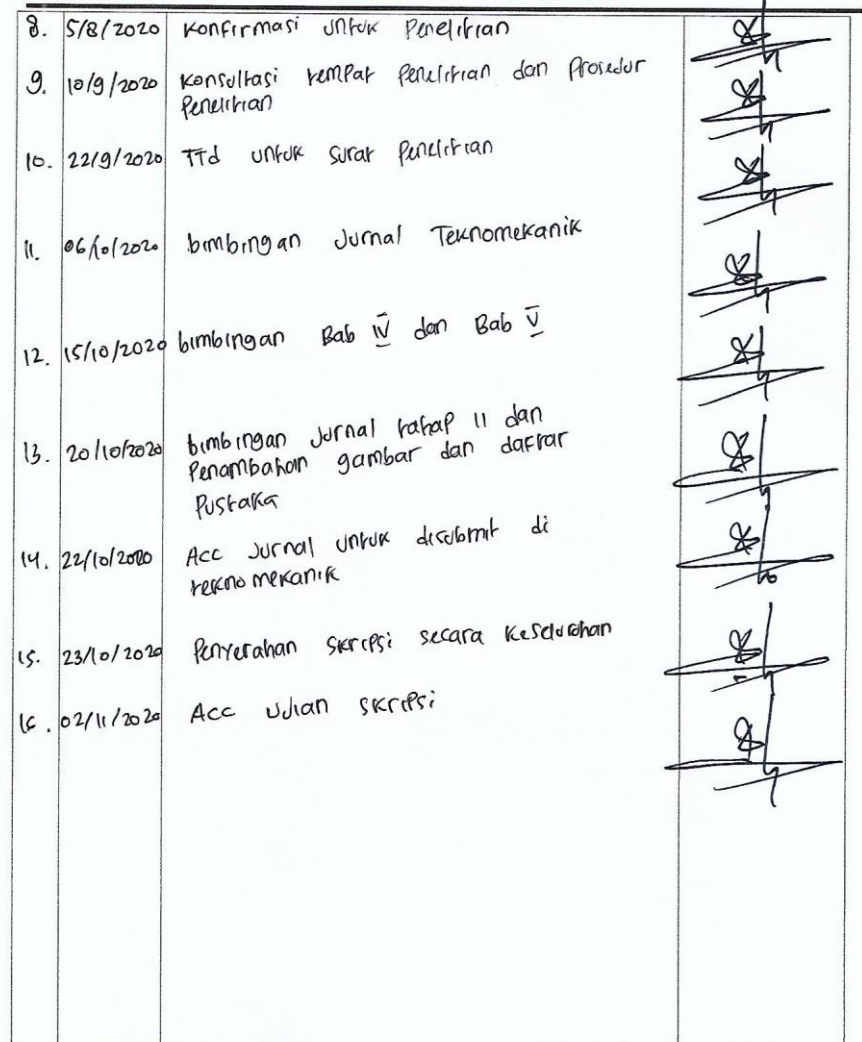 8. 5/8/2020 Konfirmasi untuk Penelitian
9. 10/9/2020 Konsultasi tempat Penelitian dan Prosedur
Penelitian
10. 22/9/2020 TTd untuk Surat Penelitian
11. 06/10/2020 bimbingan Jurnal Teknomekanik
12. 15/10/2020 bimbingan Bab IV dan Bab V
13. 20/10/2020 bimbingan Jurnal tahap II dan
Penambahan gambar dan daftar
Pustaka
14. 22/10/2020 Acc Jurnal untuk disubmit di
teknomekanik
15. 23/10/2020 Penyerahan Skripsi secara Keselurohan
16. 02/11/2020 Acc Ujian Skripsi